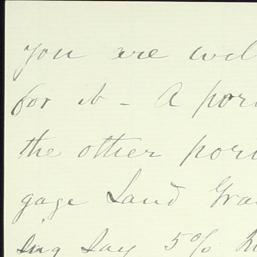 you are wel
for it - A por
the other por
gage Land Gra
ing say 5%